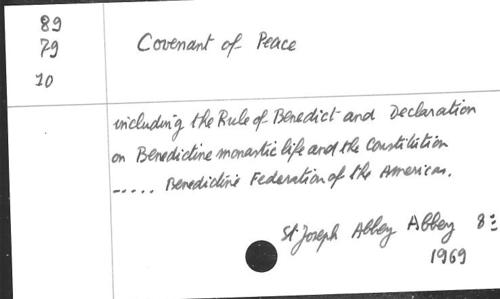 89
79
10
Covenant of Peace
including the Rule of Benedict and Declaration
on Benedictine monastic life and the Constitution
----.. Benedictine Federation of the Americas.
St Joseph Abbey Abbey 8º
1969